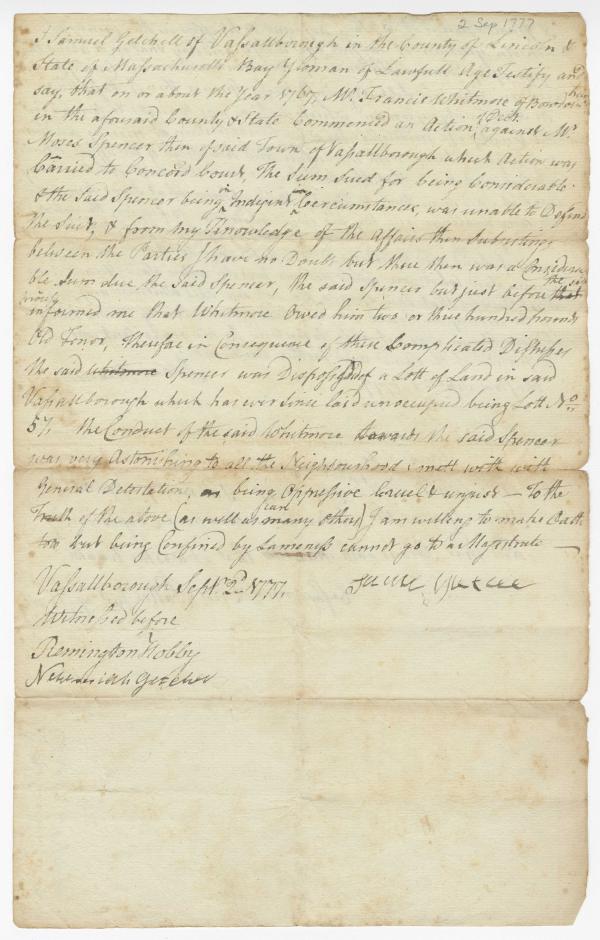 2 Sep 1777
I Samuel Getchell of Vassallborough in the County of Lincoln &
State of Massachusetts Bay Yeoman of Lawfull Age Testify and
say, that on or about the Year 1767, Mr. Francis Whitmore of Bowdoin
in the aforesaid County & State Commenced an Action against Mr.
Moses Spencer then of said Town of Vassallborough which Action was
Carried to Concord Court, The Sum Sued for being Considerable
& the said Spencer being in Indigent Circumstances, was unable to Defend
the Suit, & from my Knowledge of the Affairs then Subsisting
between the Parties I have no Doubt but there then was a Considera
ble Sum due the said Spencer, the said Spencer but just before the
informed me that Whitmore Owed him two or three hundred pounds
Old Tenor, Therefore in Consequence of these Complicated Distresses
the said Whitmore Spencer was Dispossessed of a Lott of Land in said
Vassallborough which has ever Since laid unoccupied being Lott No.
57. The Conduct of the said Whitmore towards the said Spencer
was very Astonishing to all the Neighbourhood & mett with with
General Detestation, as being Oppressive Cruel & unjust — To the
Truth of the above (as well as many others can) I am willing to make Oath
too but being Confined by Lameness cannot go to a Majestrate —
Vassallborough Sept. 2d. 1777.
Samuel Getchell
Witnessed before
Remington Hobby
Nehemiah Getchel